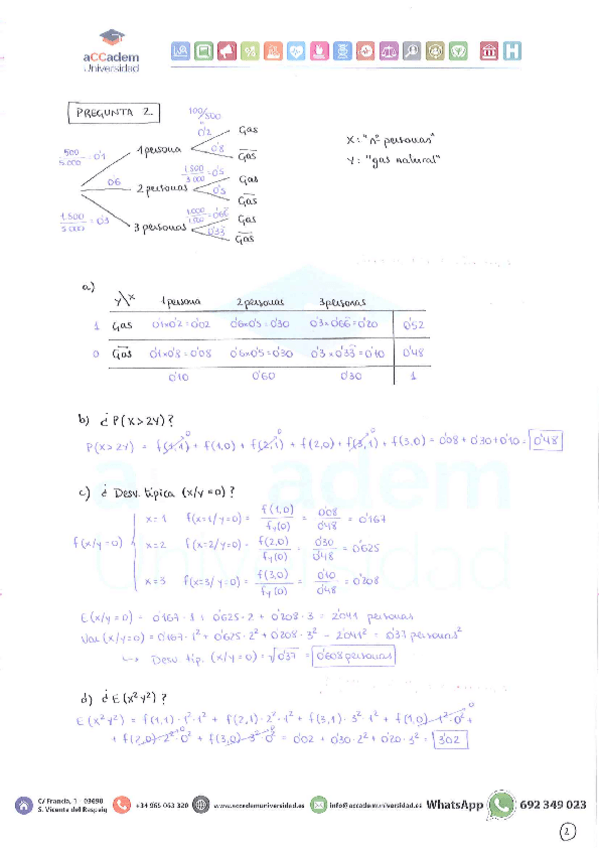 aCCadem
Universidad
H
PREGUNTA 2.
100/500
0'2 Gas
500/5.000 = 0'1
1 persona
0'8 Gas
1.500/3.000 = 0'5 Gas
0'6
2 personas
0'5 Gas
1.500/5.000 = 0'3
3 personas
= 0'66 Gas
0'33 Gas
X: "nº personas"
Y: "gas natural"
a)
Y\X 1 persona 2 personas 3 personas
1 Gas 0'1×0'2=0'02 0'6×0'5=0'30 0'3×0'66=0'20 0'52
0 Gas 0'1×0'8=0'08 0'6×0'5=0'30 0'3×0'33=0'10 0'48
0'10 0'60 0'30 1
b) ¿P(X>2Y)?
P(X>2Y) = f(1,1) + f(1,0) + f(2,1) + f(2,0) + f(3,1) + f(3,0) = 0'08 + 0'30 + 0'10 = 0'48
c) ¿Desv. típica (x/y=0)?
f(x/y=0)
x=1 f(x=1/y=0) = f(1,0)/fy(0) = 0'08/0'48 = 0'167
x=2 f(x=2/y=0) = f(2,0)/fy(0) = 0'30/0'48 = 0'625
x=3 f(x=3/y=0) = f(3,0)/fy(0) = 0'10/0'48 = 0'208
E(x/y=0) = 0'167·1 + 0'625·2 + 0'208·3 = 2'041 personas
Var(x/y=0) = 0'167·1² + 0'625·2² + 0'208·3² - 2'041² = 0'37 personas²
↳ Desv. típ. (x/y=0) = √0'37 = 0'608 personas
d) ¿E(x²y²)?
E(x²y²) = f(1,1)·1²·1² + f(2,1)·2²·1² + f(3,1)·3²·1² + f(1,0)·1²·0² +
+ f(2,0)·2²·0² + f(3,0)·3²·0² = 0'02 + 0'30·2² + 0'20·3² = 3'02
C/ Francia, 1 - 03690
S. Vicente del Raspeig
+34 965 063 320
www.accademuniversidad.es
info@accademuniversidad.es
WhatsApp
692 349 023
2